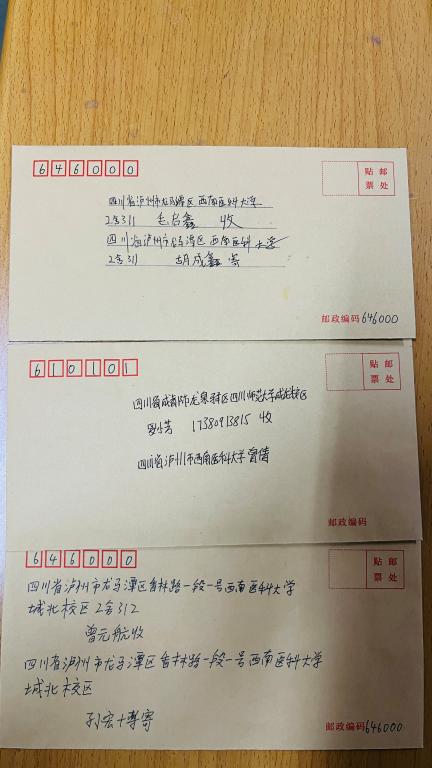 646000
贴 邮
票 处
四川省泸州市龙马潭区西南医科大学
2舍311 毛启鑫 收
四川省泸州市龙马潭区西南医科大学
2舍311 胡成鑫 寄
邮政编码646000
610101
贴 邮
票 处
四川省成都市龙泉驿区四川师范大学成龙校区
罗芳 17380913815 收
四川省泸州市西南医科大学曾倩
邮政编码
646000
贴 邮
票 处
四川省泸州市龙马潭区香林路一段一号西南医科大学
城北校区2舍312
曾元航收
四川省泸州市龙马潭区香林路一段一号西南医科大学
城北校区
孙宏 寄
邮政编码646000